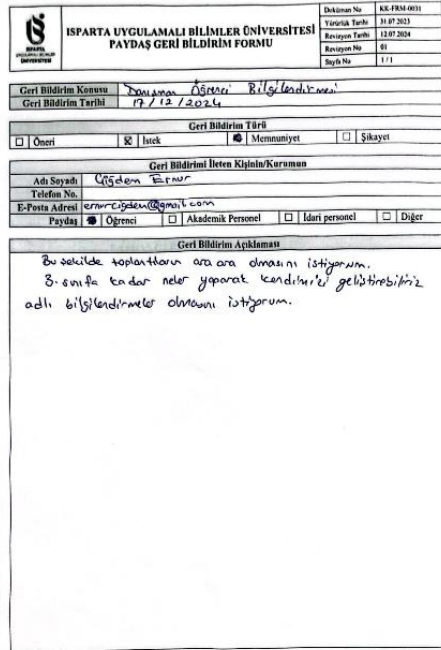 ISPARTA
UYGULAMALI BİLİMLER
ÜNİVERSİTESİ
ISPARTA UYGULAMALI BİLİMLER ÜNİVERSİTESİ
PAYDAŞ GERİ BİLDİRİM FORMU
Doküman No KK-FRM-0031
Yürürlük Tarihi 31.07.2023
Revizyon Tarihi 12.07.2024
Revizyon No 01
Sayfa No 1 / 1
Geri Bildirim Konusu Danışman Öğrenci Bilgilendirmesi
Geri Bildirim Tarihi 17/12/2024
Geri Bildirim Türü
Öneri İstek Memnuniyet Şikayet
Geri Bildirimi İleten Kişinin/Kurumun
Adı Soyadı Çiğdem Ernur
Telefon No.
E-Posta Adresi ernurcigdem@gmail.com
Paydaş Öğrenci Akademik Personel İdari personel Diğer
Geri Bildirim Açıklaması
Bu şekilde toplantıların ara ara olmasını istiyorum.
3. sınıfa kadar neler yaparak kendimizi geliştirebiliriz
adlı bilgilendirmeler olmasını istiyorum.